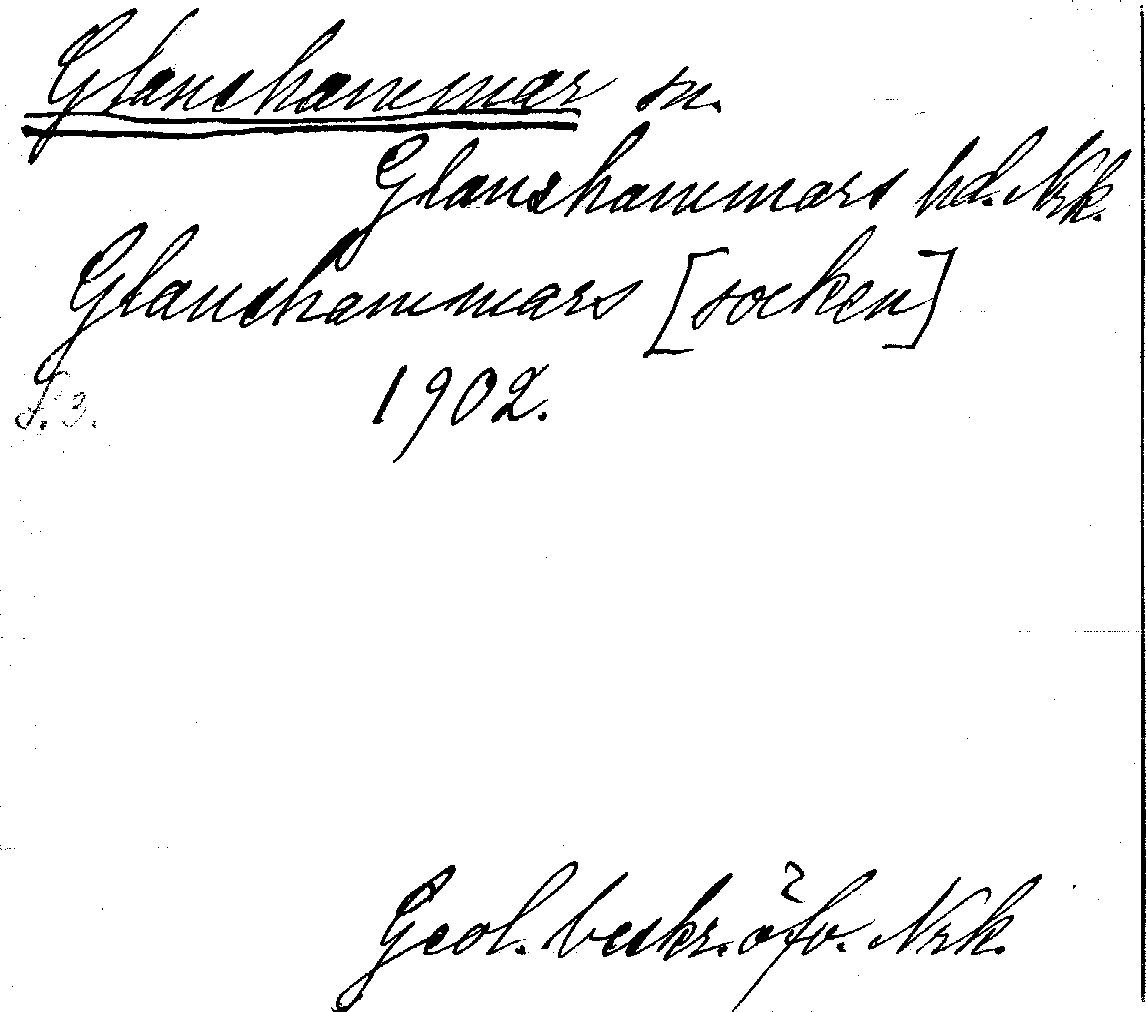 Glanshammar sn.
Glanshammars hd. Nrk.
Glanshammars [socken]
S. 3. 1902.
Geol. beskr. öfv. Nrk.